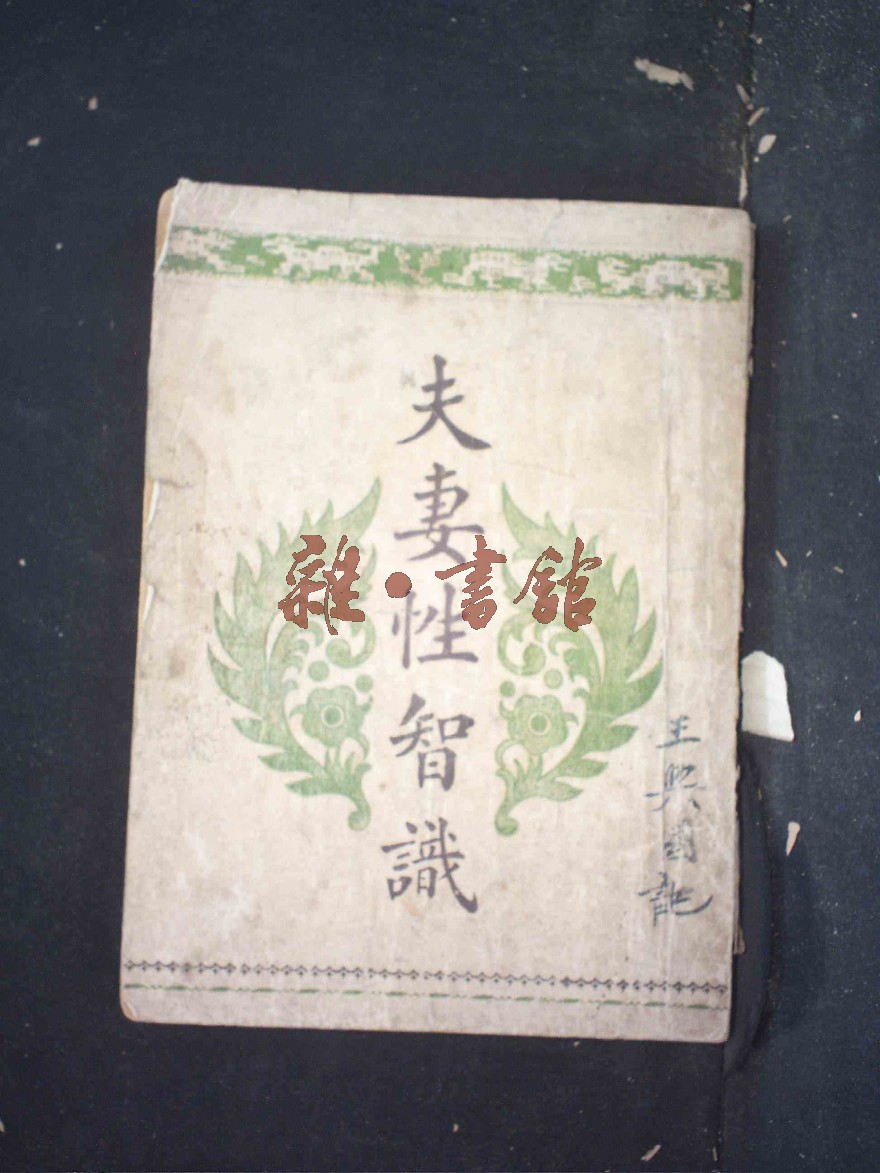 夫妻性智識
雜·書館
王興國記